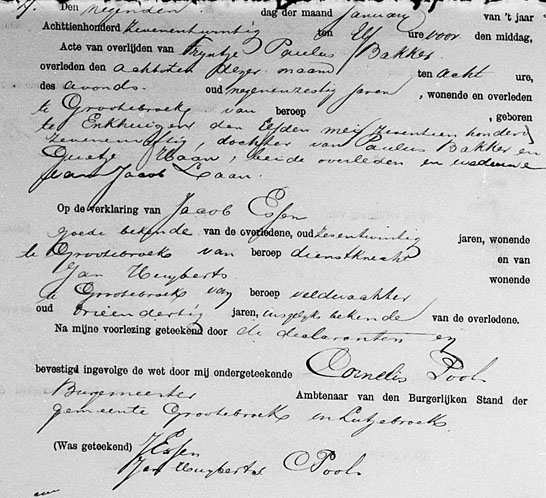 Den negenden dag der maand January van 't jaar
Achttienhonderd zevenentwintig ten Elf ure voor den middag,
Acte van overlijden van Tryntje Paulus Bakker
overleden den achtsten dezer maand ten acht ure,
des avonds. oud negenenzestig jaren, wonende en overleden
te Grootebroek van beroep , geboren
te Enkhuizen den Elfden mei zeventien honderd
zevenenvyftig, dochter van Paulus Bakker en
Haan, beide overleden en weduwe
van Jacob Laan.
Op de verklaring van Jacob Essen
goede bekende van de overledene, oud zesentwintig jaren, wonende
te Grootebroek van beroep dienstknecht en van
Jan Huyberts wonende
te Grootebroek van beroep veldwachter
oud drieendertig jaren, insgelyks bekende van de overledene.
Na mijne voorlezing geteekend door de declaranten en
bevestigd ingevolge de wet door mij ondergeteekende Cornelis Pool
Burgemeester Ambtenaar van den Burgerlijken Stand der
gemeente Grootebroek en Lutjebroek
(Was geteekend) J Essen
Jan Huyberts C Pool